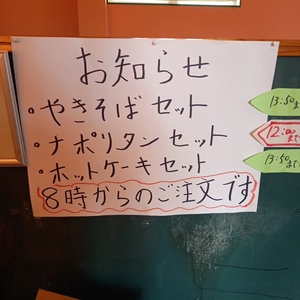 お知らせ
・やきそばセット
13:50まで
・ナポリタンセット
12:00まで
・ホットケーキセット
13:50まで
8時からのご注文です